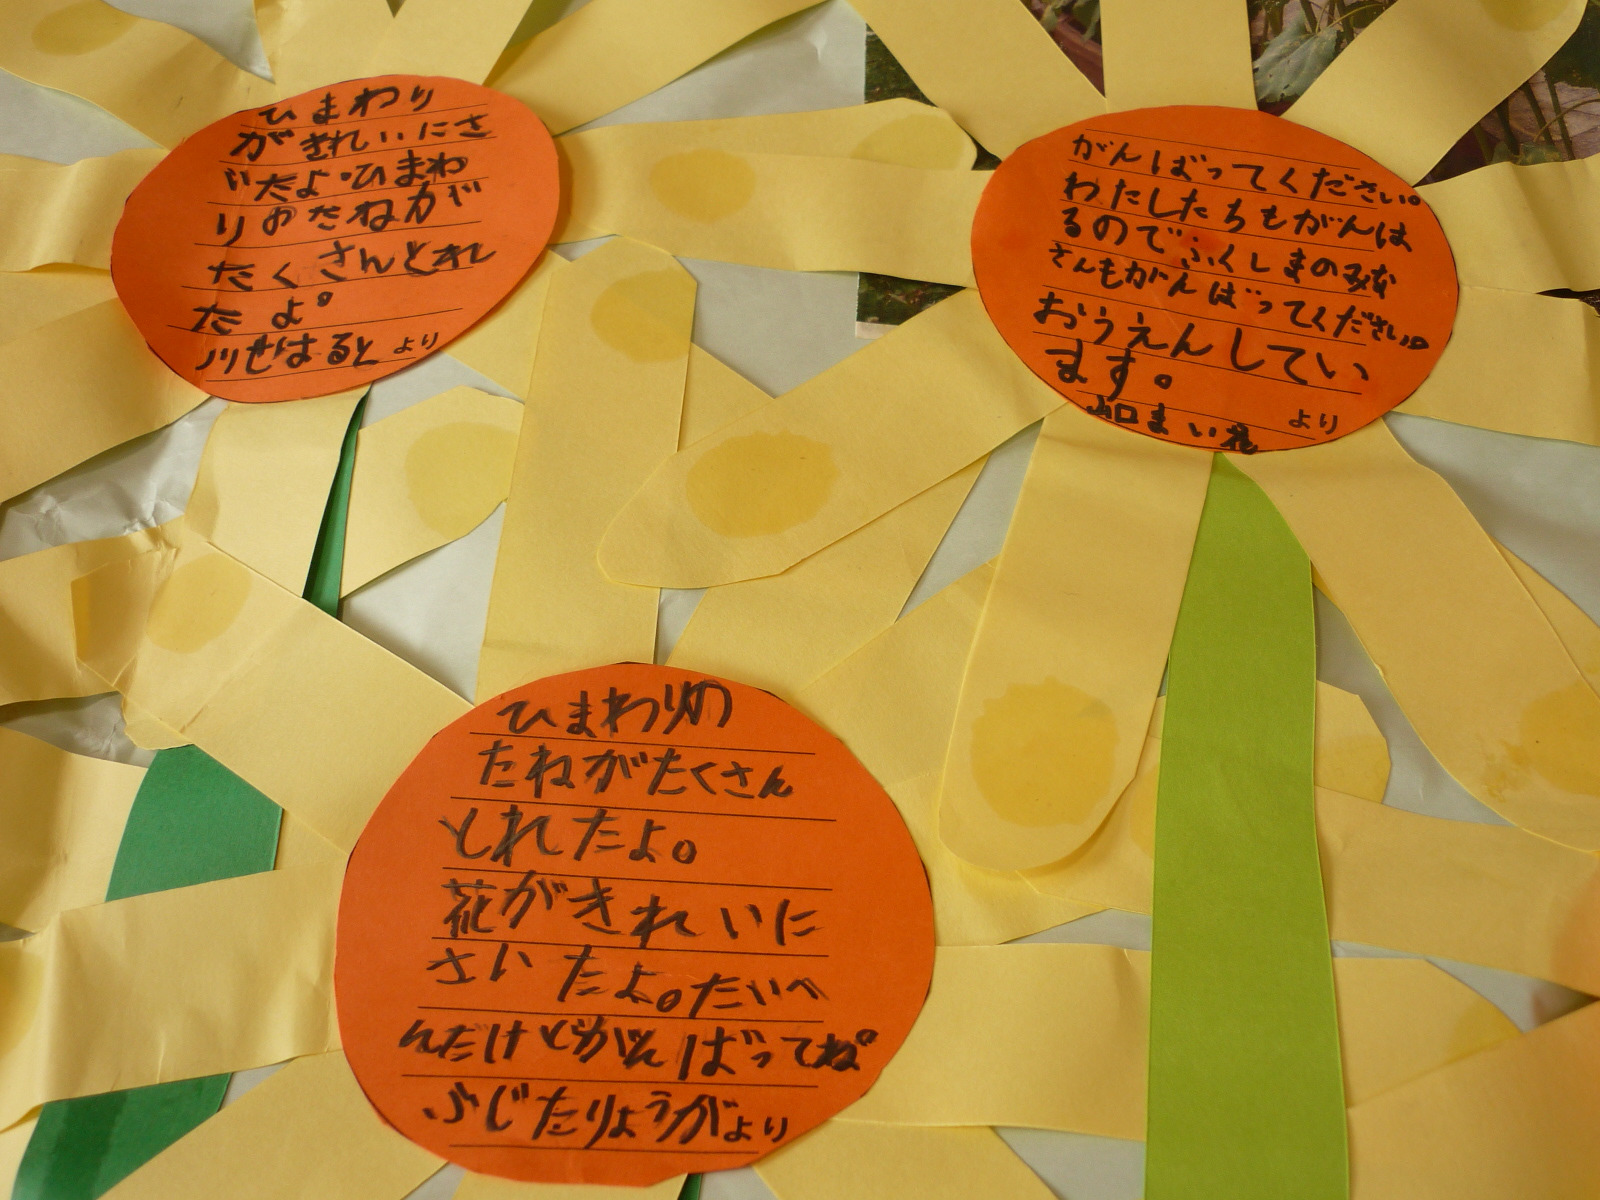 ひまわり
がきれいにさ
いたよ・ひまわ
りのたねが
たくさんとれ
たよ。
川せはるとより
がんばってください。
わたしたちもがんば
るのでふくしまのみな
さんもがんばってください。
おうえんしてい
ます。
山口まい花より
ひまわりの
たねがたくさん
とれたよ。
花がきれいに
さいたよ。たいへ
んだけどがんばってね。
ふじたりょうがより